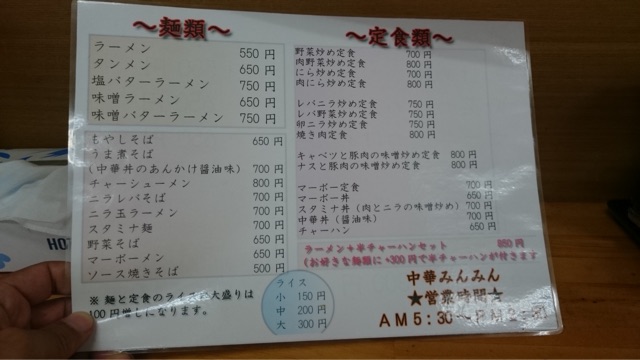 ～麺類～
ラーメン 550 円
タンメン 650 円
塩バターラーメン 750 円
味噌ラーメン 650 円
味噌バターラーメン 750 円
もやしそば 650 円
うま煮そば
(中華丼のあんかけ醤油味) 700 円
チャーシューメン 800 円
ニラレバそば 700 円
ニラ玉ラーメン 700 円
スタミナ麺 700 円
野菜そば 650 円
マーボーメン 650 円
ソース焼きそば 500 円
※ 麺と定食のライス 大盛りは
100円増しになります。
ライス
小 150円
中 200円
大 300円
～定食類～
野菜炒め定食 700 円
肉野菜炒め定食 800 円
にら炒め定食 700 円
肉にら炒め定食 800 円
レバニラ炒め定食 750 円
レバ野菜炒め定食 750 円
卵ニラ炒め定食 750 円
焼き肉定食 800 円
キャベツと豚肉の味噌炒め定食 800 円
ナスと豚肉の味噌炒め定食 800 円
マーボー定食 700 円
マーボー丼 650 円
スタミナ丼 (肉とニラの味噌炒め) 700 円
中華丼 (醤油味) 700 円
チャーハン 650 円
ラーメン+半チャーハンセット 850 円
(お好きな麺類に+300円で半チャーハンが付きます
中華みんみん
★営業時間☆
AM5:30～PM
HOT